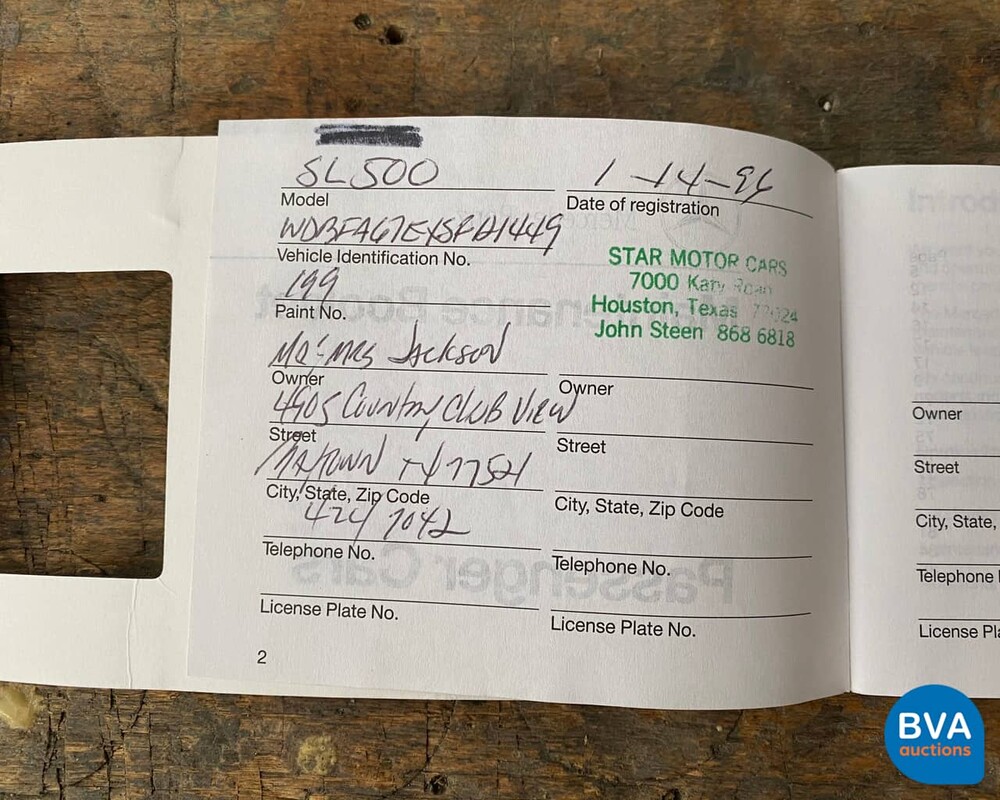 SL500
Model
1-14-96
Date of registration
WDBFA67EXSFA11449
Vehicle Identification No.
STAR MOTOR CARS
7000 Katy Road
Houston, Texas 77024
John Steen 868 6818
199
Paint No.
MR & MRS JACKSON
Owner
4905 Country Club View
Street
TX 77521
City, State, Zip Code
424 7042
Telephone No.
License Plate No.
2
Owner
Street
City, State, Zip Code
Telephone No.
License Plate No.
Owner
Street
City, State,
Telephone
License Pl
BVA
auctions